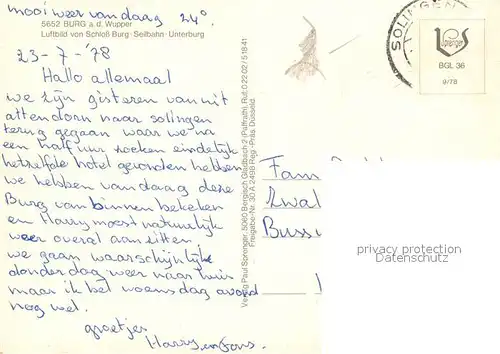 mooi weer vandaag 24°.
5652 BURG a. d. Wupper
Luftbild von Schloß Burg · Seilbahn · Unterburg
23-7-'78
Hallo allemaal
we zijn gisteren vanuit
attendorn naar solingen
terug gegaan waar we na
een half uur zoeken eindelijk
hetzelfde hotel gevonden hebben
we hebben vandaag deze
Burg van binnen bekeken
en Harry moest natuurlijk
weer overal aanzitten.
we gaan waarschijnlijk
donderdag weer naar huis
maar ik bel woensdag avond
nog wel.
groetjes
Harry en Fons.
Verlag Paul Sprenger, 5060 Bergisch Gladbach 2 (Paffrath), Ruf: 0 22 02 / 5 18 41
Freigabe-Nr. 30 A 2498 Reg.-Präs. Düsseld.
SOLINGEN
Sprenger
BGL 36
9/78
Fam
Zwal
Buss
privacy protection
Datenschutz